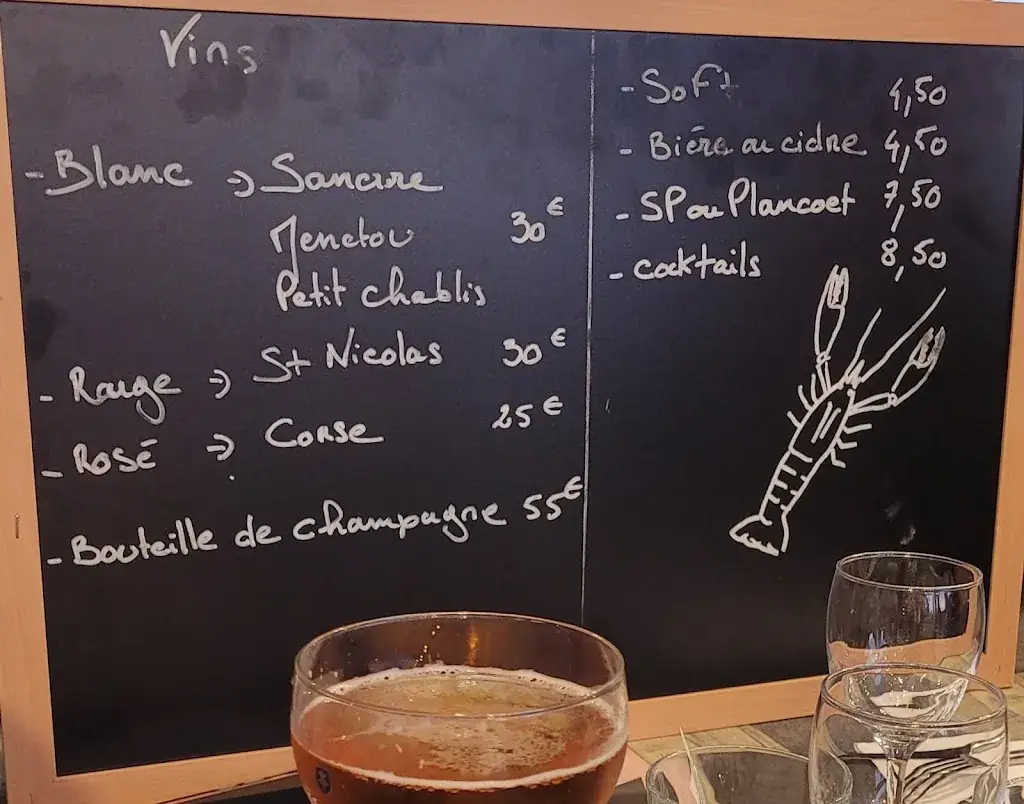 Vins
- Blanc → Sancerre
Menetou 30€
Petit chablis
- Rouge → St Nicolas 30€
- Rosé → Corse 25€
- Bouteille de champagne 55€
- Soft 4,50
- Bière ou cidre 4,50
- SP ou Plancoet 7,50
- cocktails 8,50